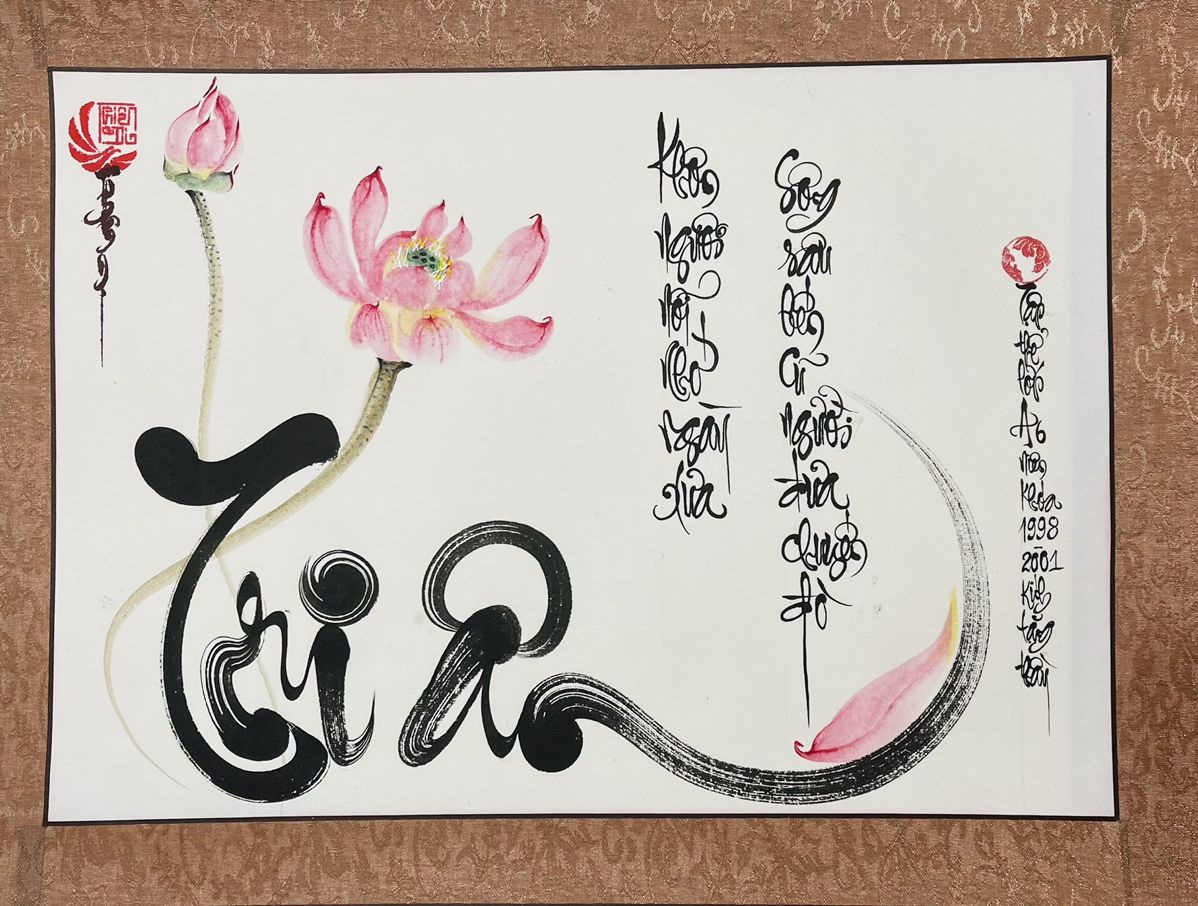 Tri Ân
Khôn nguôi nỗi nhớ ngày xưa
Sông sâu bến cũ người đưa chuyến đò
Tập thể lớp A6 niên khóa 1998 2001 Kính tặng thầy